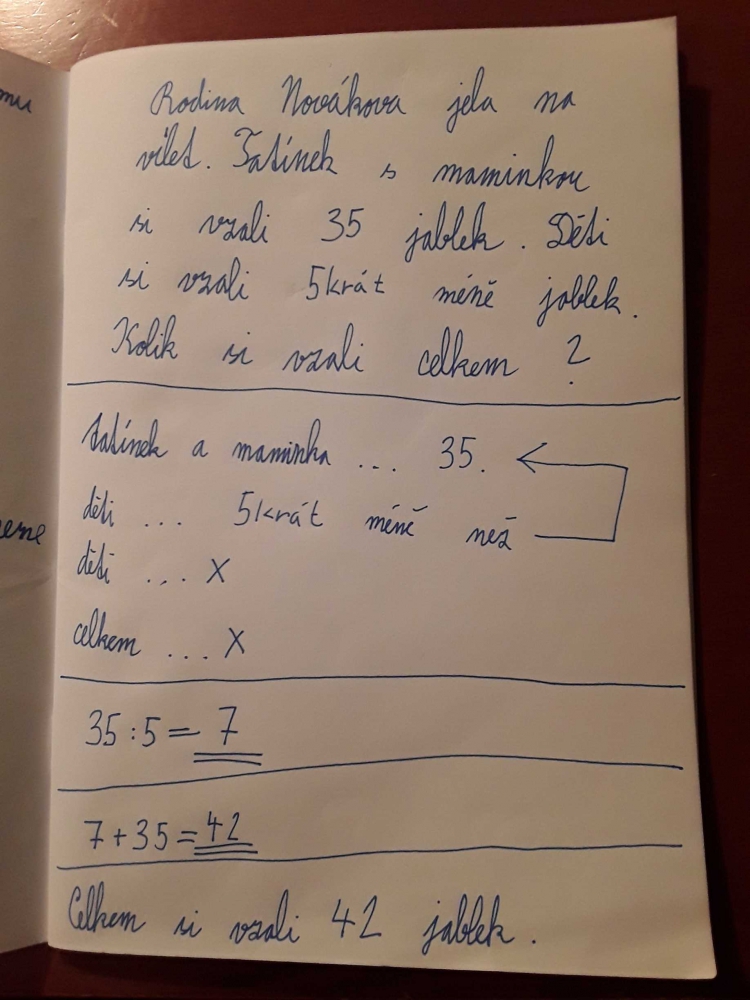 Rodina Novákova jela na
vílet. Tatínek s maminkou
si vzali 35 jablek. Děti
si vzali 5krát méně jablek.
Kolik si vzali celkem ?
tatínek a maminka ... 35.
děti ... 5krát méně než
děti ... X
celkem ... X
35 : 5 = 7
7 + 35 = 42
Celkem si vzali 42 jablek.